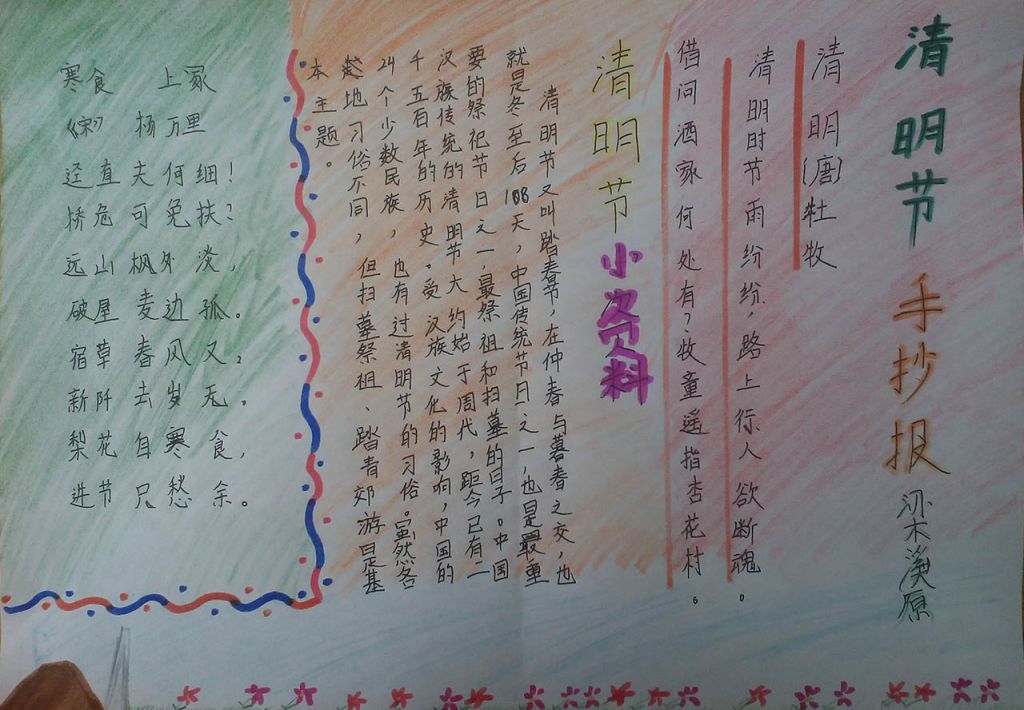 清明节 手抄报
梁溪原
清明
(唐)牡牧
清明时节雨纷纷,路上行人欲断魂。
借问酒家何处有?牧童遥指杏花村。
清明节小资料
清明节又叫踏春节,在仲春与暮春之交,也
就是冬至后108天,中国传统节日之一,也是最重
要的祭祀节日之一,最祭祖和扫墓的日子。中国
汉族传统的清明节大约始于周代,距今已有二
千五百年的历史。受汉族文化的影响,中国的
24个少数民族,也有过清明节的习俗。虽然各
地习俗不同,但扫墓祭祖、踏青郊游是基
本主题。
寒食 上冢
《宋》 杨万里
迳直夫何细!
桥危可免扶?
远山枫外淡,
破屋麦边孤。
宿草春风又,
新阡去岁无。
梨花自寒食,
进节只愁余。